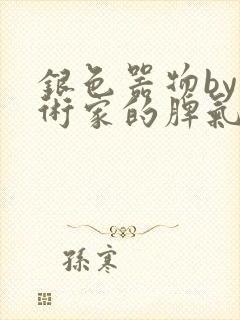 銀色器物by
術家的脾氣
孫寒